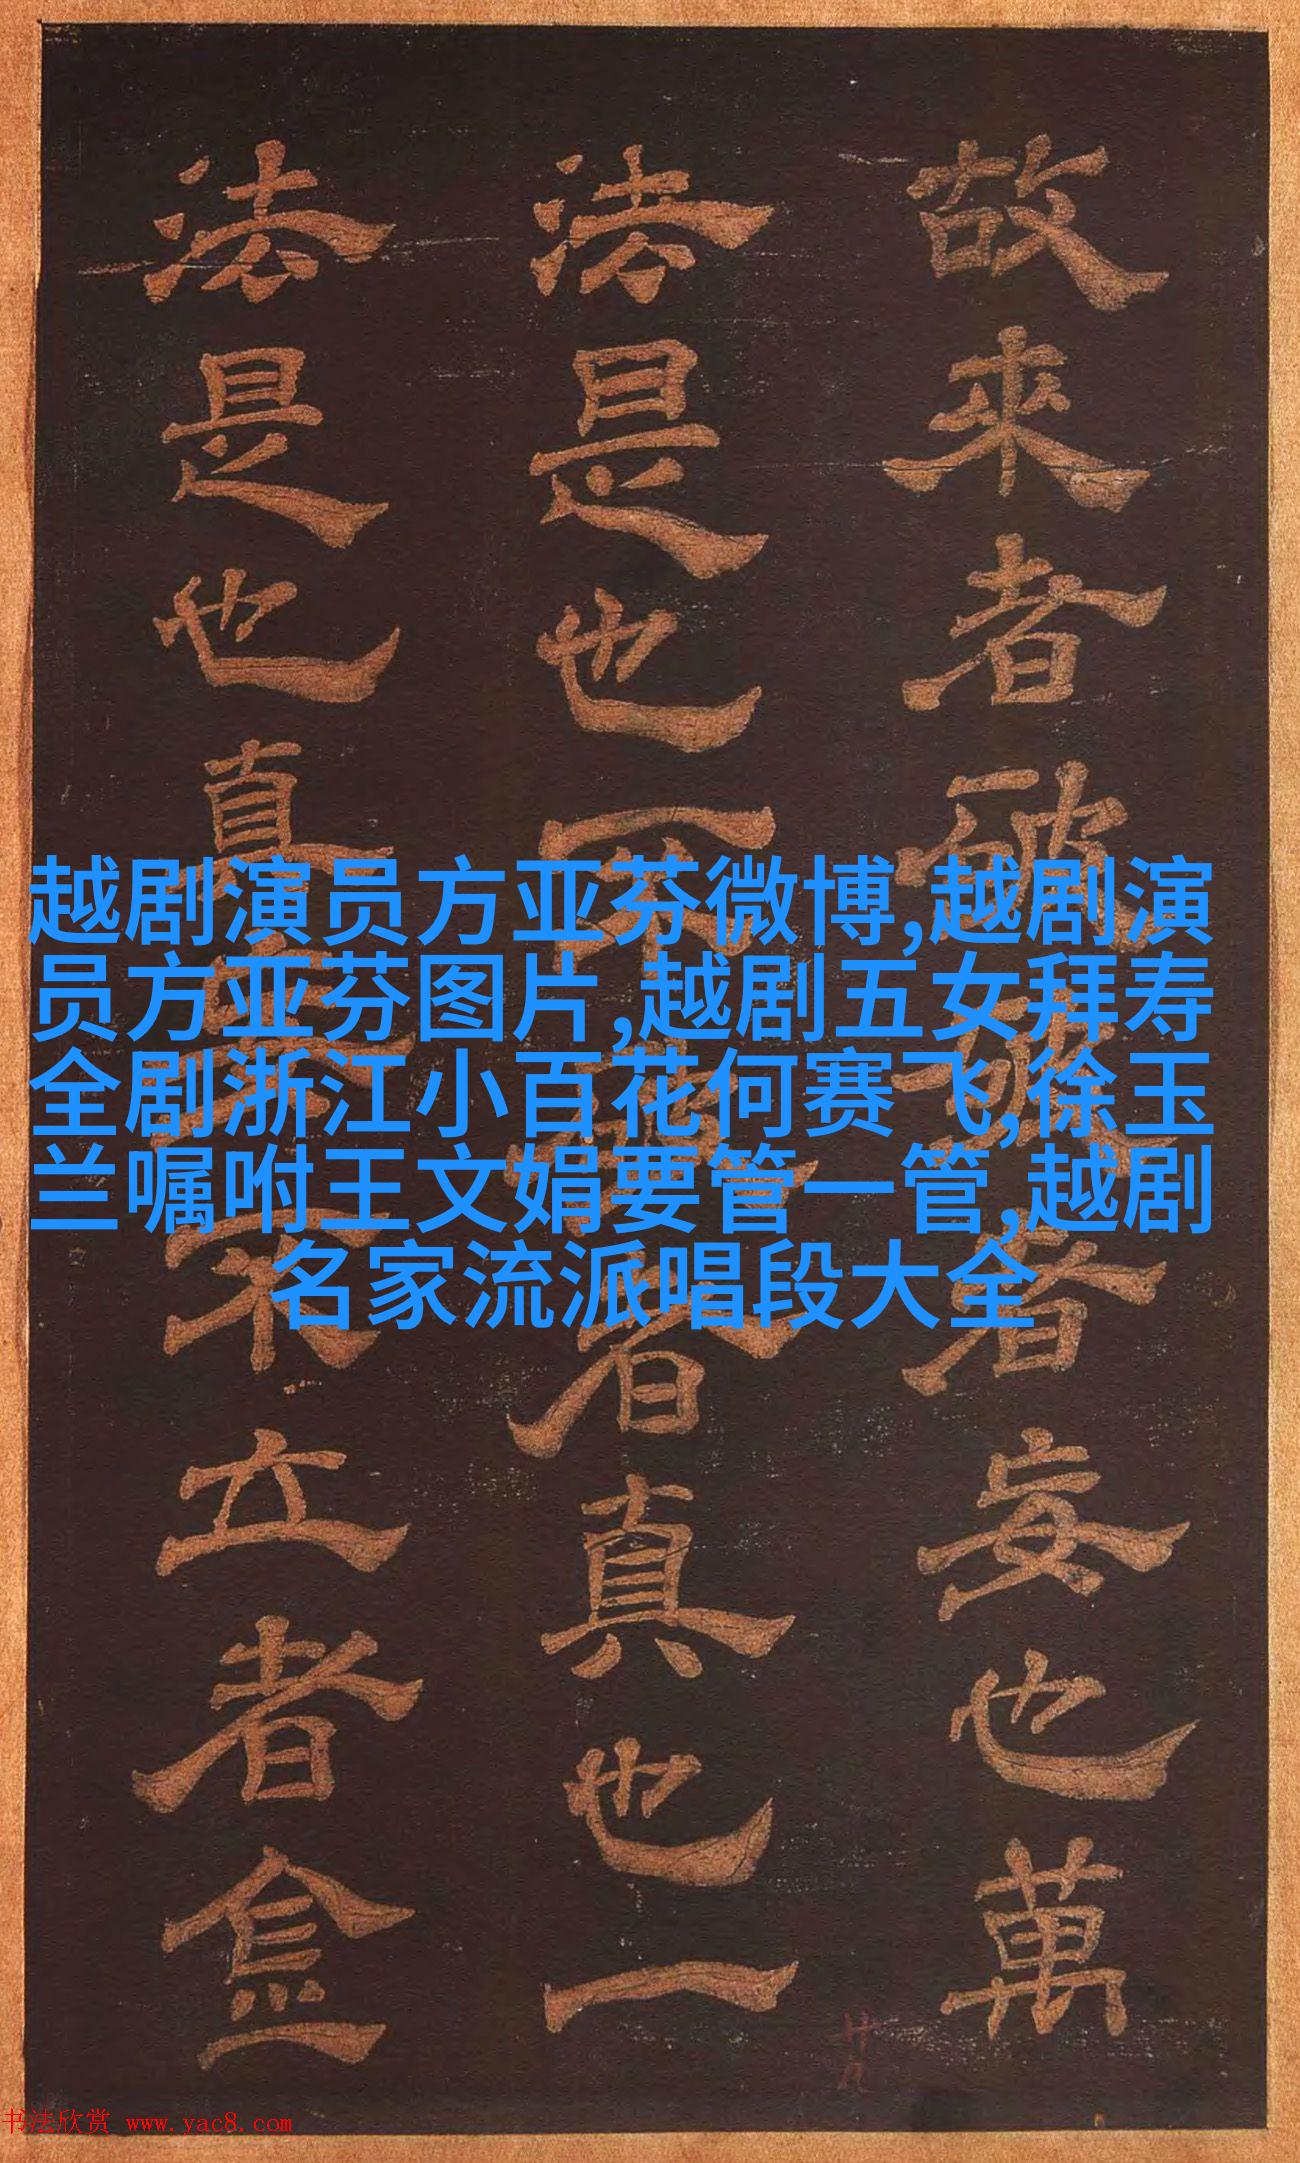 故來者者妄也萬
法是也不者真也一
法是也真不立者
越剧演员方亚芬微博,越剧演
员方亚芬图片,越剧五女拜寿
全剧浙江小百花何赛飞,徐玉
兰嘱咐王文娟要管一管,越剧
名家流派唱段大全
书法欣赏 www.yac8.com